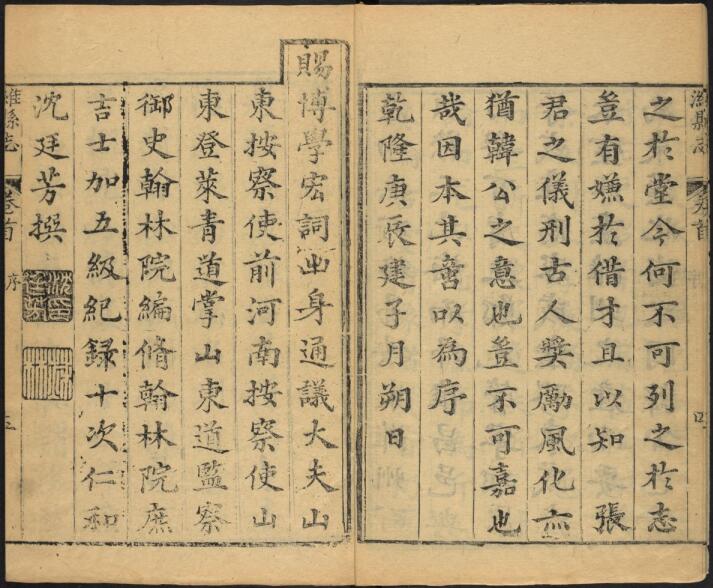 之於堂今何不可列之於志
豈有嫌於借才且以知 張
君之儀刑古人獎勵風化亦
猶韓公之意也豈不可嘉也
哉因本其意以為序
乾隆庚辰建子月朔日
賜博學宏詞出身通議大夫山
東按察使前河南按察使山
東登萊青道掌山東道監察
御史翰林院編脩翰林院庶
吉士加五級紀録十次仁和
沈廷芳撰
濰縣志
卷首
序